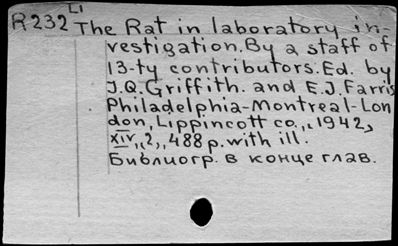 LI
R232 The Rat in laboratory in-
vestigation. By a staff of
13-ty contributors. Ed. by
J.Q. Griffith. and E.J. Farris
Philadelphia-Montreal-Lon
don, Lippincott co., 1942,
XIV,,2,,488 p. with ill.
Библиогр. в конце глав.